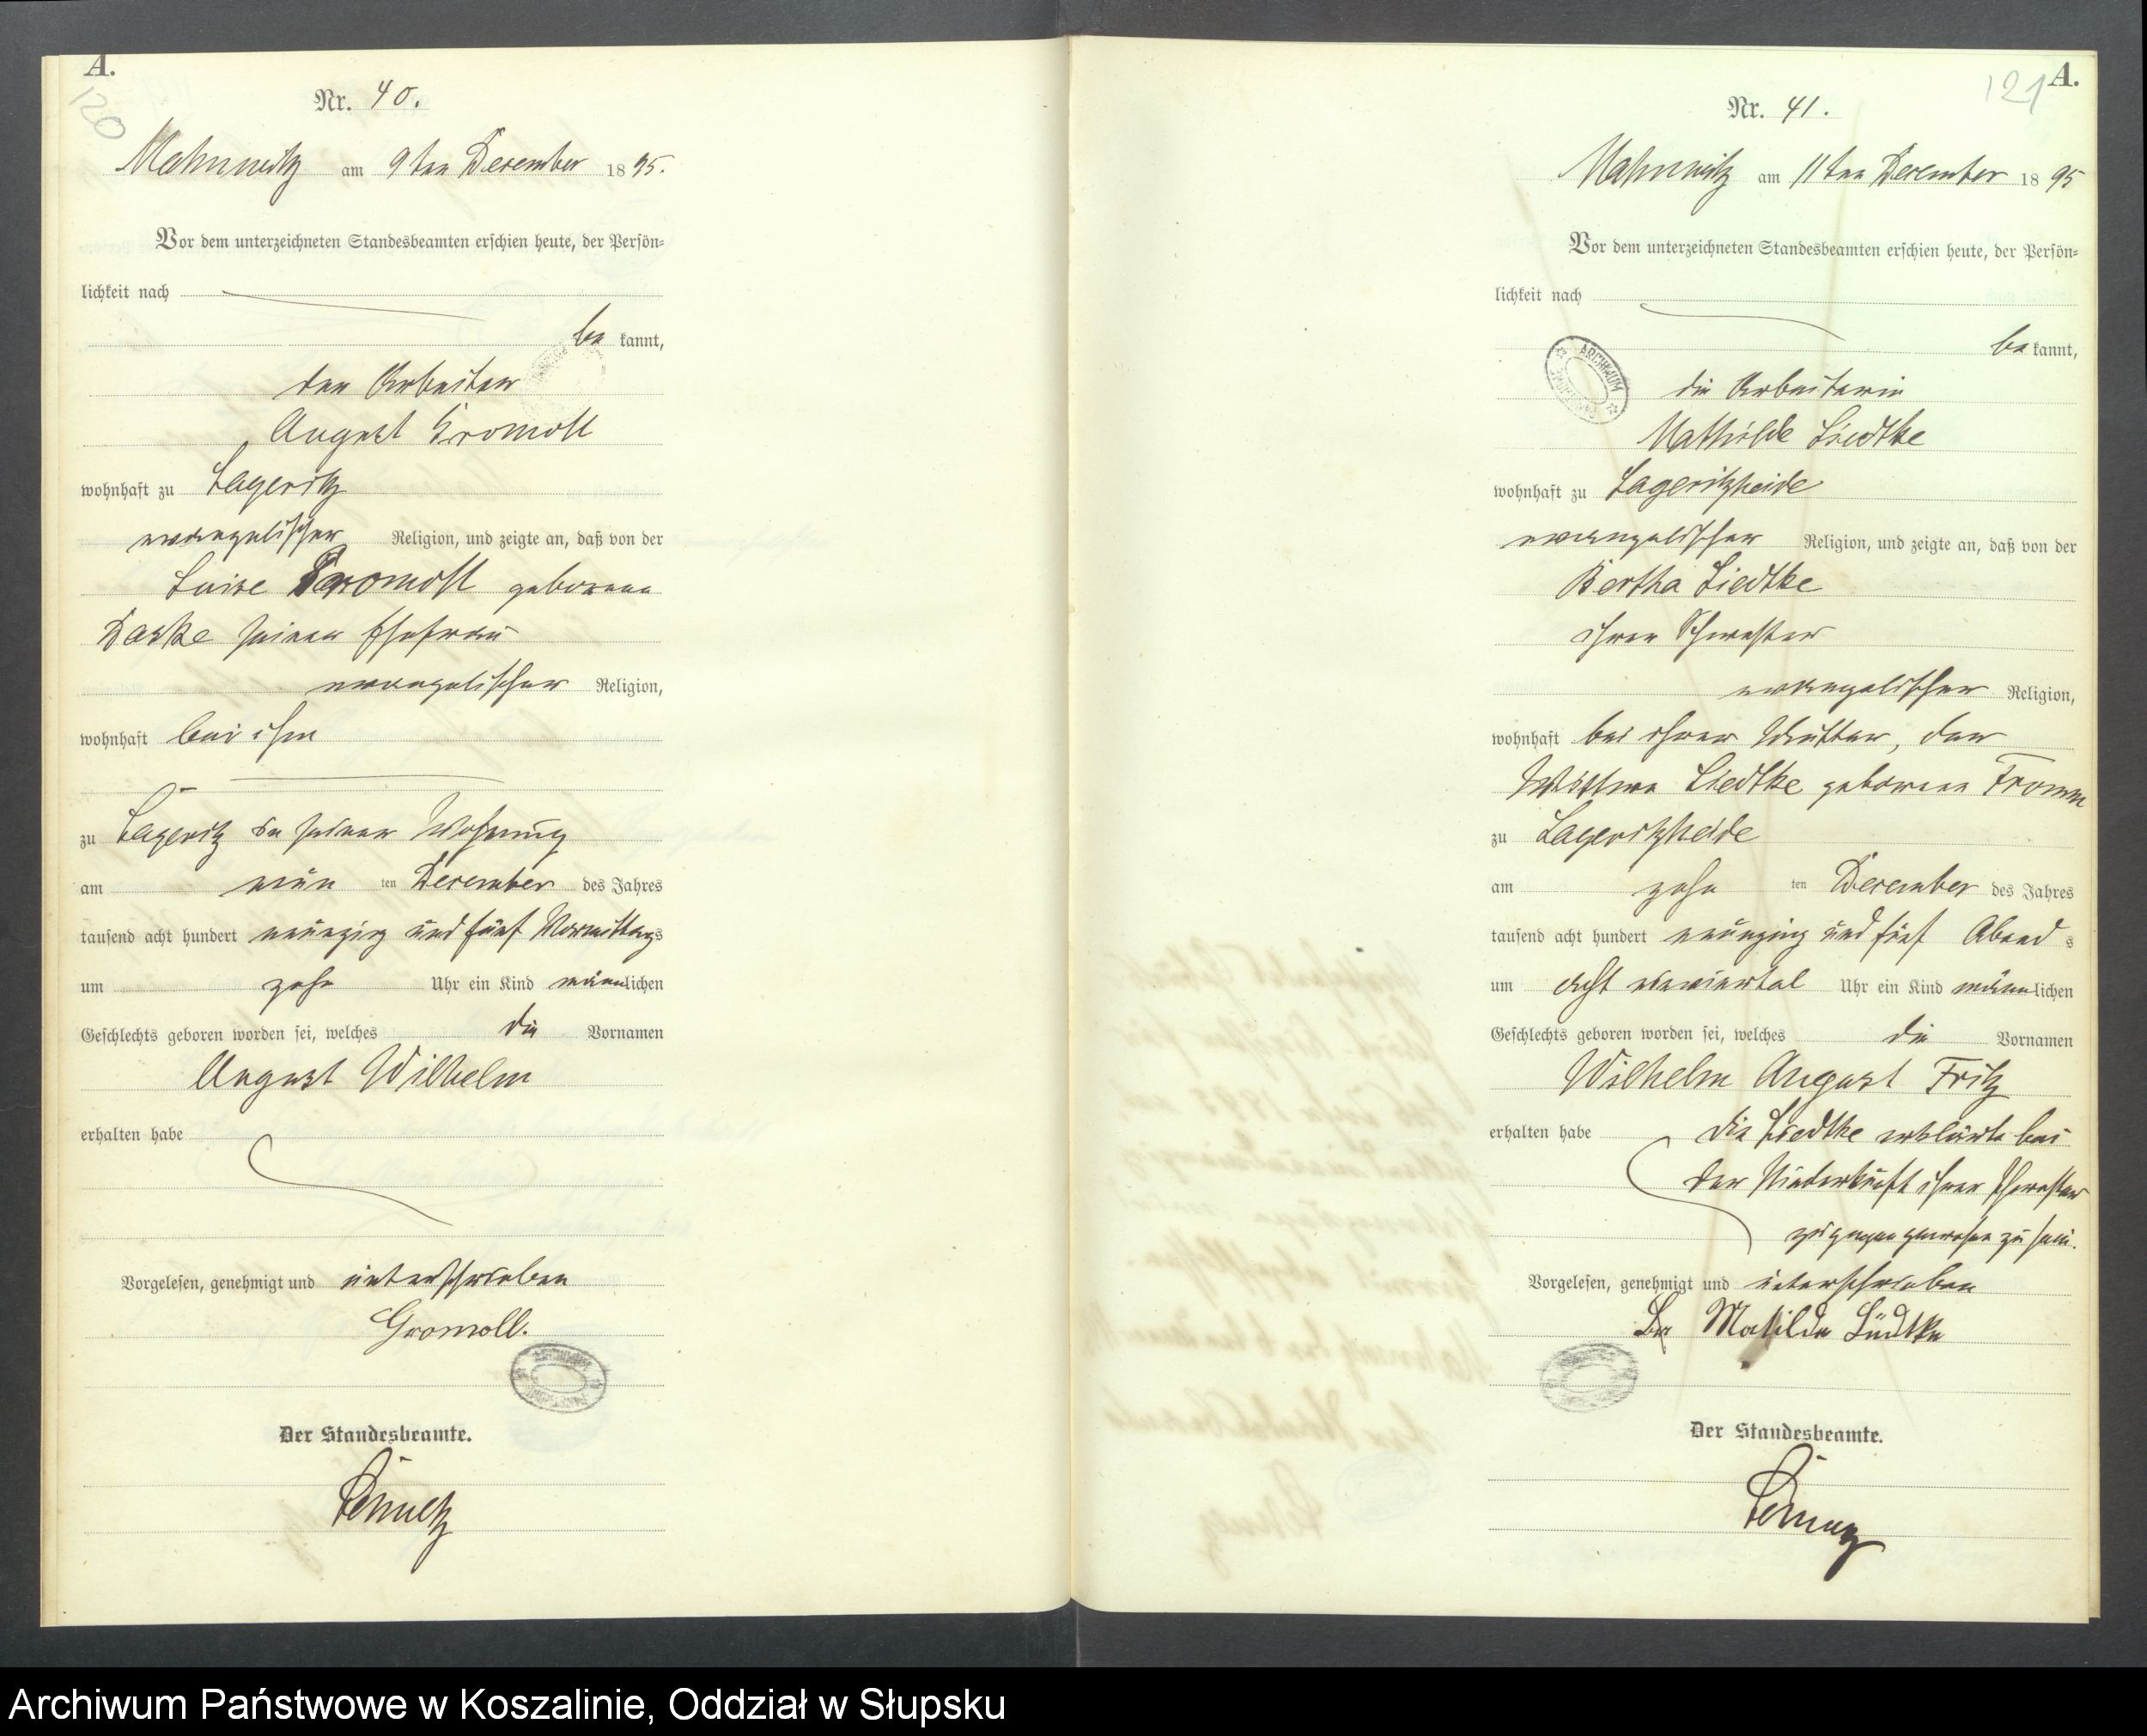 A.
120
Nr. 40.
Mahnwitz am 9ten December 1895.
Vor dem unterzeichneten Standesbeamten erschien heute, der Persön-
lichkeit nach
be kannt,
der Arbeiter
August Gromoll
wohnhaft zu Lageritz
evangelischer Religion, und zeigte an, daß von der
Luise Gromoll geborene
Daske seiner Ehefrau
evangelischer Religion,
wohnhaft bei ihm
zu Lageritz in seiner Wohnung
am neun ten December des Jahres
tausend acht hundert neunzig und fünf Vormittags
um zehn Uhr ein Kind männlichen
Geschlechts geboren worden sei, welches die Vornamen
August Wilhelm
erhalten habe
Vorgelesen, genehmigt und unterschrieben
Gromoll.
Der Standesbeamte.
121 A.
Nr. 41.
Mahnwitz am 11ten December 1895
Vor dem unterzeichneten Standesbeamten erschien heute, der Persön-
lichkeit nach
be kannt,
ARCHIWUM
die Arbeiterin
Mathilde Liedtke
wohnhaft zu Lageritzheide
evangelischer Religion, und zeigte an, daß von der
Bertha Liedtke
ihrer Schwester
evangelischer Religion,
wohnhaft bei ihrer Mutter, der
Wittwe Liedtke geborene Fromm
zu Lageritzheide
am zehn ten December des Jahres
tausend acht hundert neunzig und fünf Abend s
um acht einviertel Uhr ein Kind männlichen
Geschlechts geboren worden sei, welches die Vornamen
Wilhelm August Fritz
erhalten habe Die Liedtke erklärte bei
der Niederkunft ihrer Schwester
zugegen gewesen zu sein.
Vorgelesen, genehmigt und unterschrieben
Matilde Lüdtke
Der Standesbeamte.
Archiwum Państwowe w Koszalinie, Oddział w Słupsku